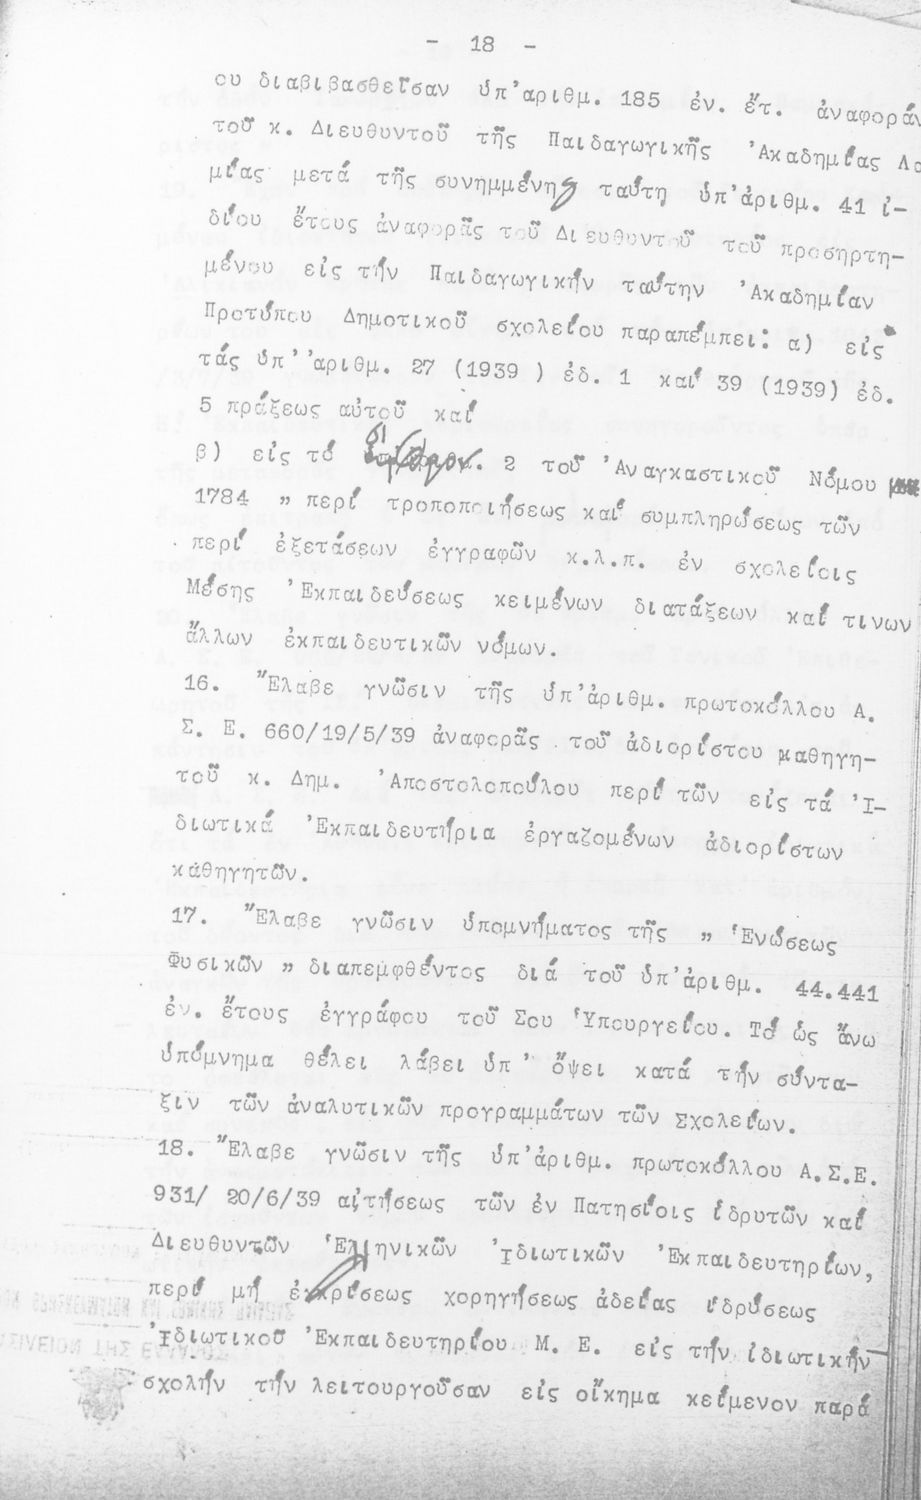 - 18 -
ου διαβιβασθεῖσαν ὑπ'ἀριθμ. 185 ἐν. ἔτ. ἀναφοράν
τοῦ κ. Διευθυντοῦ τῆς Παιδαγωγικῆς 'Ακαδημίας Λα
μίας μετά τῆς συνημμένης ταύτη ὑπ'ἀριθμ. 41 ἰ-
δίου ἔτους ἀναφορᾶς τοῦ Διευθυντοῦ τοῦ προσηρτη-
μένου εἰς τήν Παιδαγωγικήν ταύτην 'Ακαδημίαν
Προτύπου Δημοτικοῦ σχολείου παραπέμπει: α) εἰς
τάς ὑπ''ἀριθμ. 27 (1939 ) ἐδ. 1 καί 39 (1939) ἐδ.
5 πράξεως αὐτοῦ καί
β) εἰς τό 2 τοῦ 'Αναγκαστικοῦ Νόμου
1784 „ περί τροποποιήσεως καί συμπληρώσεως τῶν
περί ἐξετάσεων ἐγγραφῶν κ.λ.π. ἐν σχολείοις
Μέσης 'Εκπαιδεύσεως κειμένων διατάξεων καί τινων
ἄλλων ἐκπαιδευτικῶν νόμων.
16. Ἔλαβε γνῶσιν τῆς ὑπ'ἀριθμ. πρωτοκόλλου Α.
Σ. Ε. 660/19/5/39 ἀναφορᾶς τοῦ ἀδιορίστου καθηγη-
τοῦ κ. Δημ. 'Αποστολοπούλου περί τῶν εἰς τά 'Ι-
διωτικά 'Εκπαιδευτήρια ἐργαζομένων ἀδιορίστων
καθηγητῶν.
17. Ἔλαβε γνῶσιν ὑπομνήματος τῆς „ Ἑνώσεως
Φυσικῶν „ διαπεμφθέντος διά τοῦ ὑπ'ἀριθμ. 44.441
ἐν. ἔτους ἐγγράφου τοῦ Σου Ὑπουργείου. Τό ὡς ἄνω
ὑπόμνημα θέλει λάβει ὑπ' ὄψει κατά τήν σύντα-
ξιν τῶν ἀναλυτικῶν προγραμμάτων τῶν Σχολείων.
18. Ἔλαβε γνῶσιν τῆς ὑπ'ἀριθμ. πρωτοκόλλου Α.Σ.Ε.
931/ 20/6/39 αἰτήσεως τῶν ἐν Πατησίοις ἱδρυτῶν καί
Διευθυντῶν Ἑλληνικῶν Ἰδιωτικῶν 'Εκπαιδευτηρίων,
περί μή ἐγκρίσεως χορηγήσεως ἀδείας ἱδρύσεως
Ἰδιωτικοῦ 'Εκπαιδευτηρίου Μ. Ε. εἰς τήν ἰδιωτικήν
σχολήν τήν λειτουργοῦσαν εἰς οἴκημα κείμενον παρά